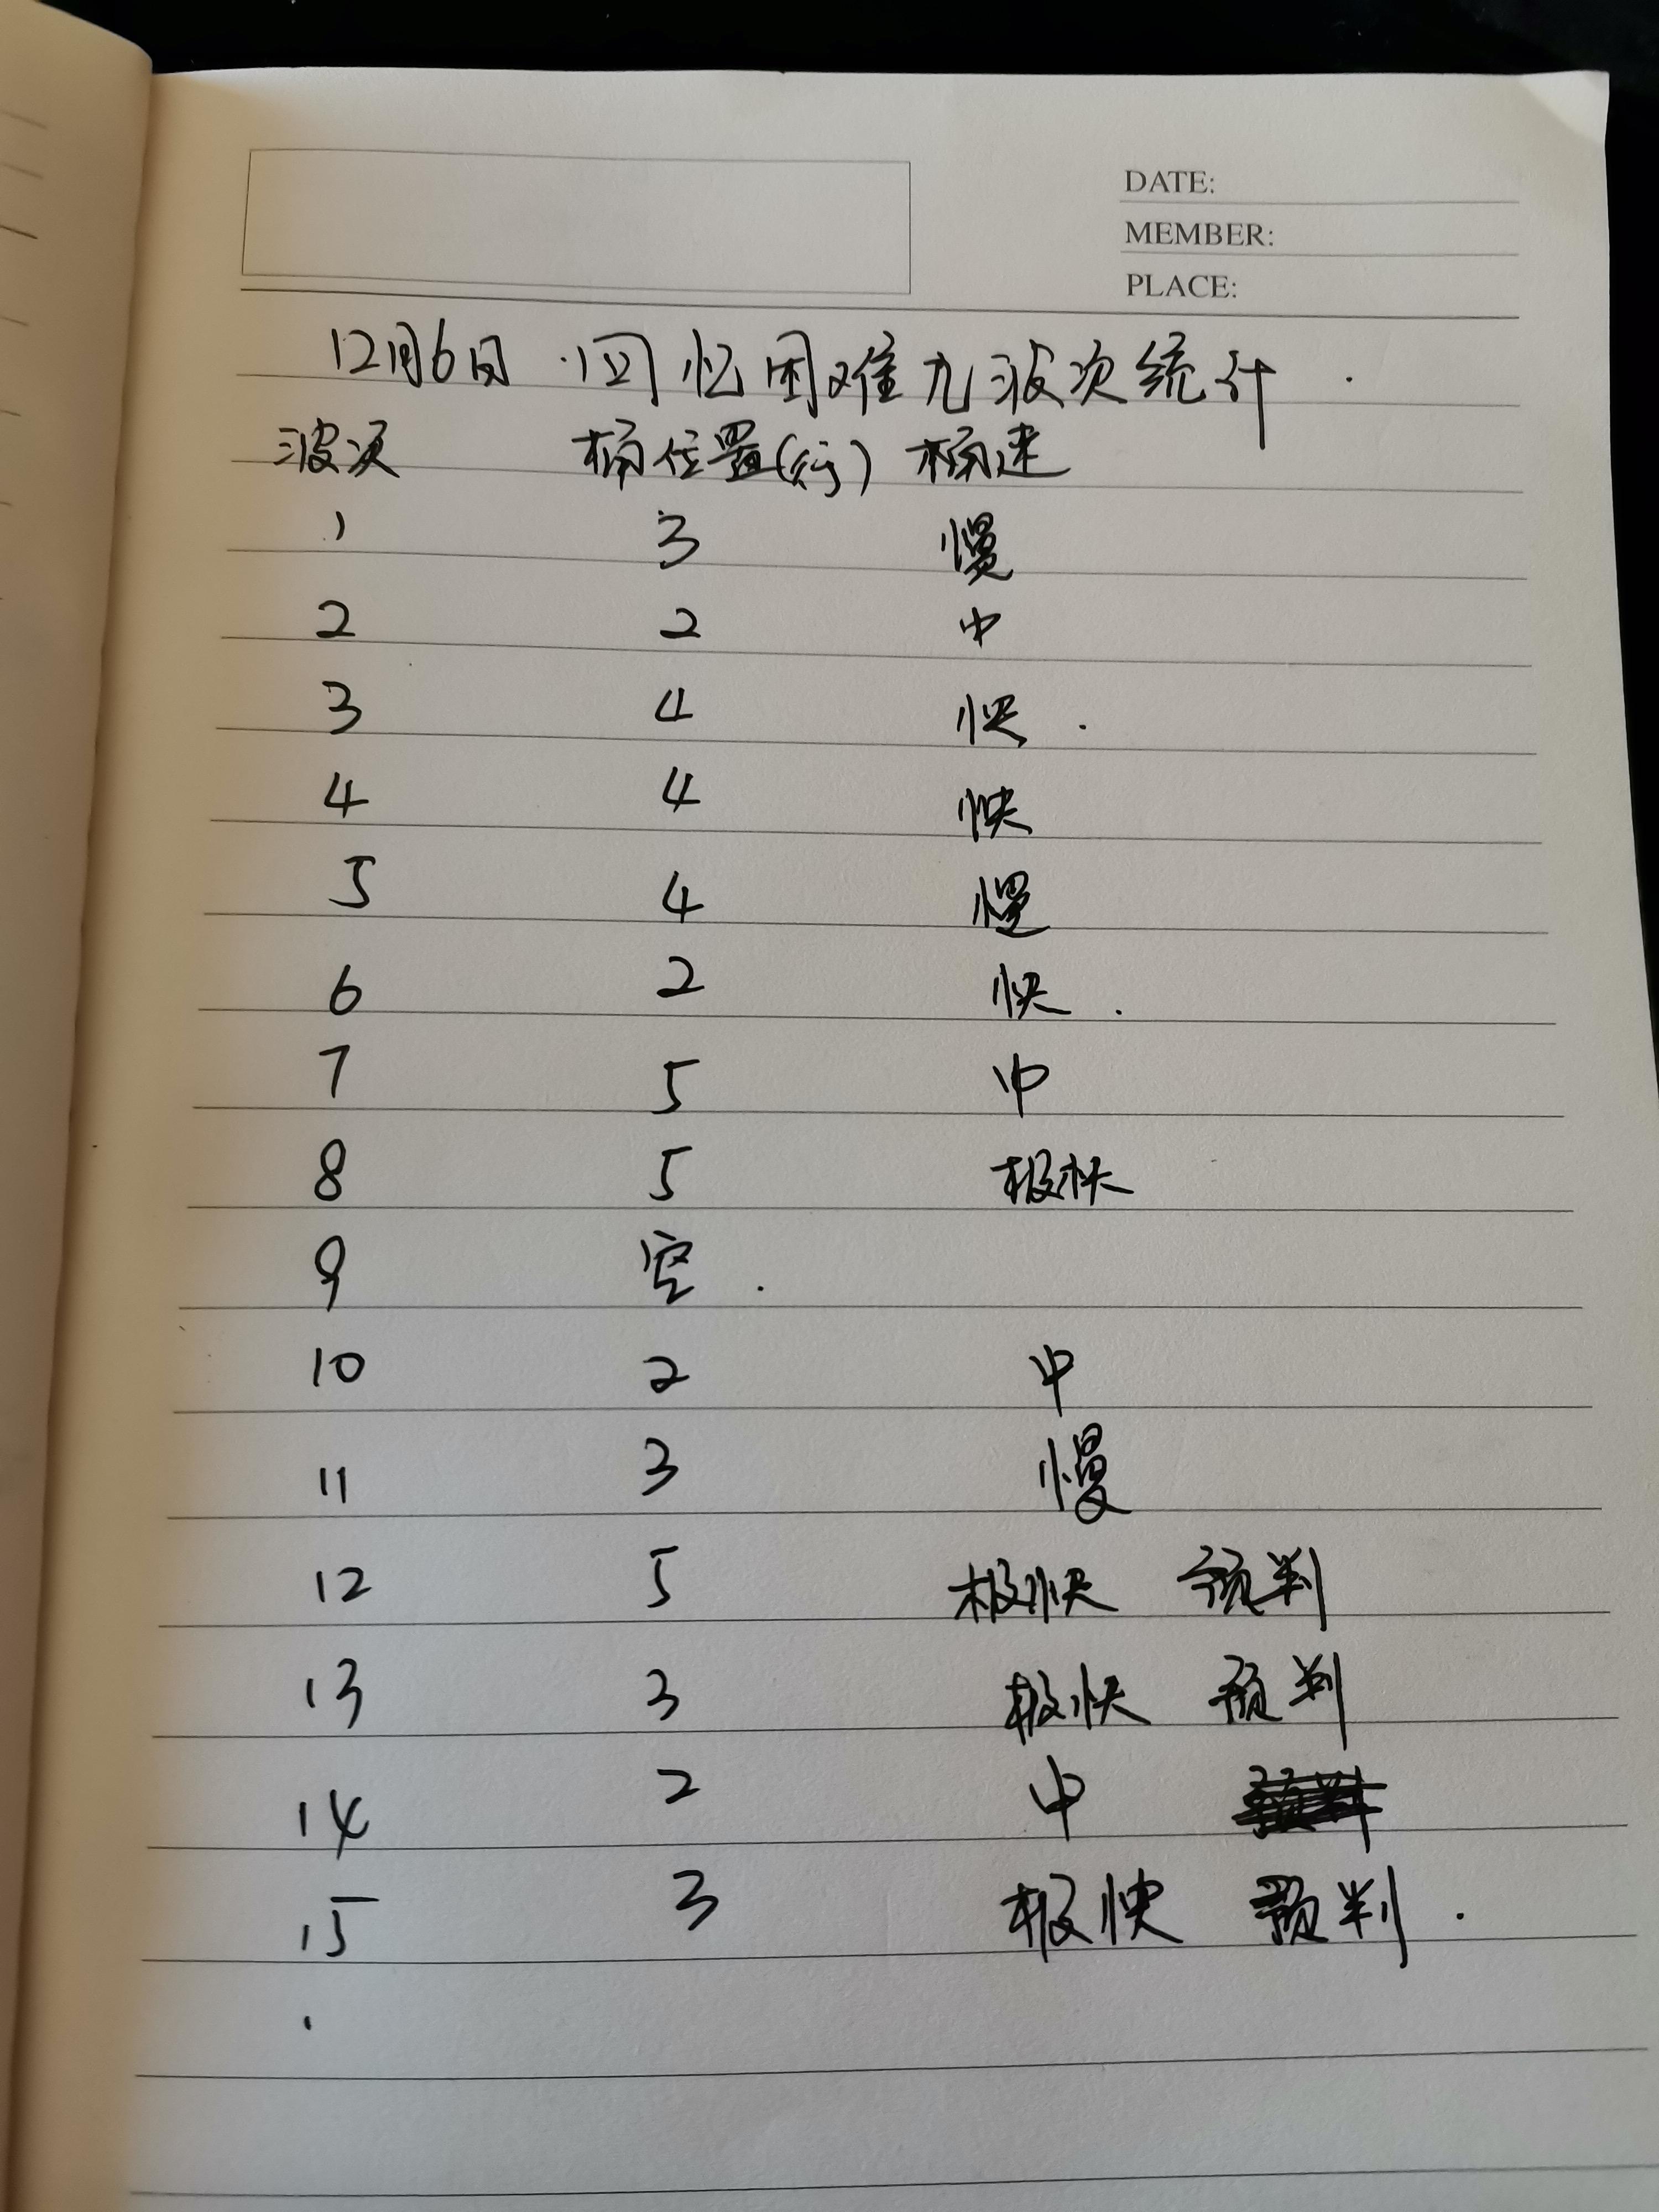 DATE:
MEMBER:
PLACE:
12月6日 回忆困难九波次统计
波次 桶位置(行) 桶速
1 3 慢
2 2 中
3 4 快
4 4 快
5 4 慢
6 2 快
7 5 中
8 5 极快
9 空
10 2 中
11 3 慢
12 5 极快 预判
13 3 极快 预判
14 2 中
15 3 极快 预判